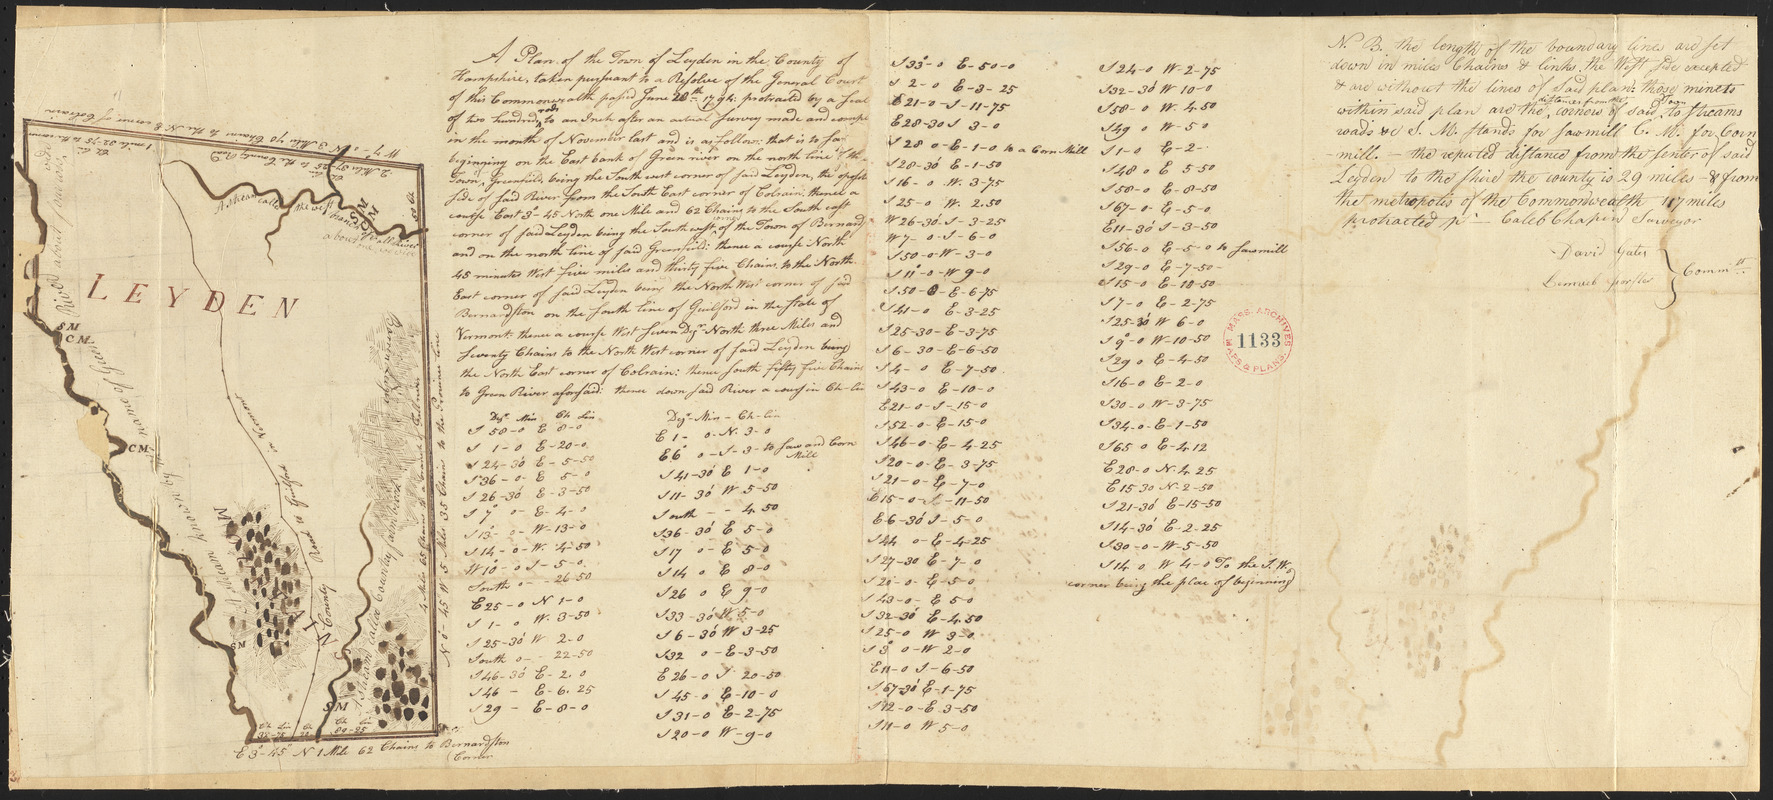 A Plan of the Town of Leyden in the County of
Hampshire, taken pursuant to a Resolve of the General Court
of this Commonwealth passed June 1794: protracted by a scal
of two hundred rods to an Inch after an actual survey made and
in the month of November last and is as follow: that is to say
beginning on the East bank of Green river on the north line of the
Town Greenfield, being the South west corner of said Leyden, the
side of said River from the South East corner of Colrain: thence a
course East 3°-45 North one Mile and 62 Chains to the South east
corner of said Leyden being the South west of the Town of Bernard
and on the north line of said Greenfield: thence a course North
45 minutes West five miles and thirty five Chains to the North
East corner of said Leyden being the North West corner of said
Bernardston on the South line of Guilford in the state of
Vermont: thence a course West seven Degs North three Miles and
seventy Chains to the North West corner of said Leyden being
the North East corner of Colrain: thence south fifty five Chains
to Green River aforsaid: thence down said River a course in Ch-lin
Degs Min Ch Lin
S 50-0 E 8-0
S 1-0 E-20-0
S 24-30 E-5-50
S 36-0 E 5-0
S 26-30 E-3-50
S 7 0-E-4-0
S 13-0-W-13-0
S 14-0-W-4-50
W 10-0-S-5-0
South 0-26-50
E 25-0 N 1-0
S 1-0 W-3-50
S 25-30 W 2-0
South 0-22-50
S 46-30 E-2.0
S 46-E-6.25
S 29-E-8-0
Degs-Min-Ch-lin
E 1-0-N.3-0
E 6 0-S-3-to Saw and Corn
Mill
S 41-30 E 1-0
S 11-30 W 5-50
South--4.50
S 36-30 E 5-0
S 17 0-E 5-0
S 14 0 E 8-0
S 26 0 E 9-0
S 33-30 W 5-0
S 6-30 W 3-25
S 32 0-E-3-50
E 26-0 S-20-50
S 45-0 E-10-0
S 31-0 E-2-75
S 20-0 W-9-0
S 33-0 E-50-0
S 2-0 E-3-25
E 21-0-S-11-75
E 28-30 S 3-0
S 28 0-E-1-0 to a Corn Mill
S 28-30 E-1-50
S 16-0 W.3-75
S 25-0 W.2.50
W 26-30 S-3-25
W 7-0 S-6-0
S 50-0 W-3-0
S 11-0-W 9-0
S 50-0-E-6-75
S 41-0 E-3-25
S 25-30-E-3-75
S 6-30-E-6-50
S 4-0 E-7-50
S 43-0 E-10-0
E 21-0-S-15-0
S 52-0 E-15-0
S 46-0-E-4-25
S 20-0-E-3-75
S 21-0-E-7-0
E 15-0-S-11-50
E 6-30 S-5-0
S 44 0-E-4-25
S 27-30 E-7-0
S 20-0-E-5-0
S 43-0-E 5-0
S 32-30 E-4.50
S 25-0 W 3-0
S 3 0-W 2-0
E 11-0 S-6-50
S 67-30 E-1-75
S 12-0-E 3-50
S 11-0 W 5-0
S 24-0 W-2-75
S 32-30 W 10-0
S 58-0 W-4.50
S 49 0 W-5 0
S 1-0 E-2-
S 48 0 E 5-50
S 50-0-E-8-50
S 67-0-E-5-0
E 11-30 S-3-50
S 56-0 E-5-0 to Sawmill
S 29-0 E-7-50-
S 15-0 E-10-50
S 7-0 E-2-75
S 25-30 W 6-0
S 9-0 W-10-50
S 29 0 E-4-50
S 16-0 E-2-0
S 30-0 W-3-75
S 34-0-E-1-50
S 65 0 E-4.12
E 28-0 N.4 25
E 15 30 N-2-50
S 21-30 E-15-50
S 14-30 E-2-25
S 30-0-W-5-50
S 14 0 W 4-0 To the S.W
corner being the place of beginning
N. B. the length of the boundary lines are set
down in miles Chains & links, the West side excepted
& are without the lines of said plan; those minets
within said plan are the distances from the corners of said Town to Streams
roads &c S. M. stands for Sawmill C. M. for Corn
-mill. - the reputed distance from the senter of said
Leyden to the Shire the county is 29 miles - & from
the metropolis of the Commonwealth 117 miles
protracted pr - Caleb Chapin Surveyor
David Gates
Comm
MASS. ARCHIVES
1133
MAPS & PLANS.
LEYDEN
W 7-0 N 3 Miles 70 Chains to the N E corner of Colrain
A Stream called the west branch of Fall River
SM
CM
SM
CM
CM
SM
SM
MOUNTAIN
County Road to Guilford in Vermont
N 0-45 W 5 Miles 35 Chains to the Province line
E 3°-45" N 1 Mile 62 Chains to Bernardston
Corner